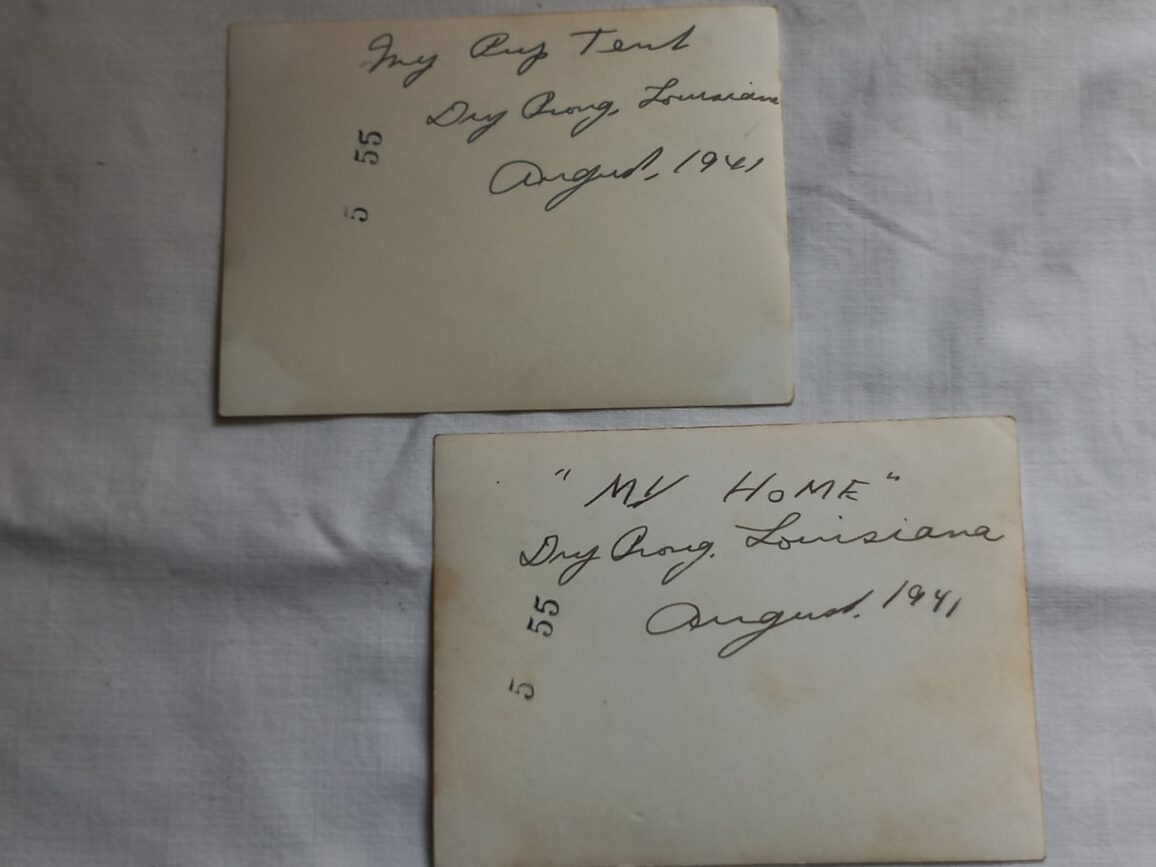 My Pup Tent
Dry Prong, Louisiana
August, 1941
5 55
"MY HOME"
Dry Prong, Louisiana
August, 1941
5 55